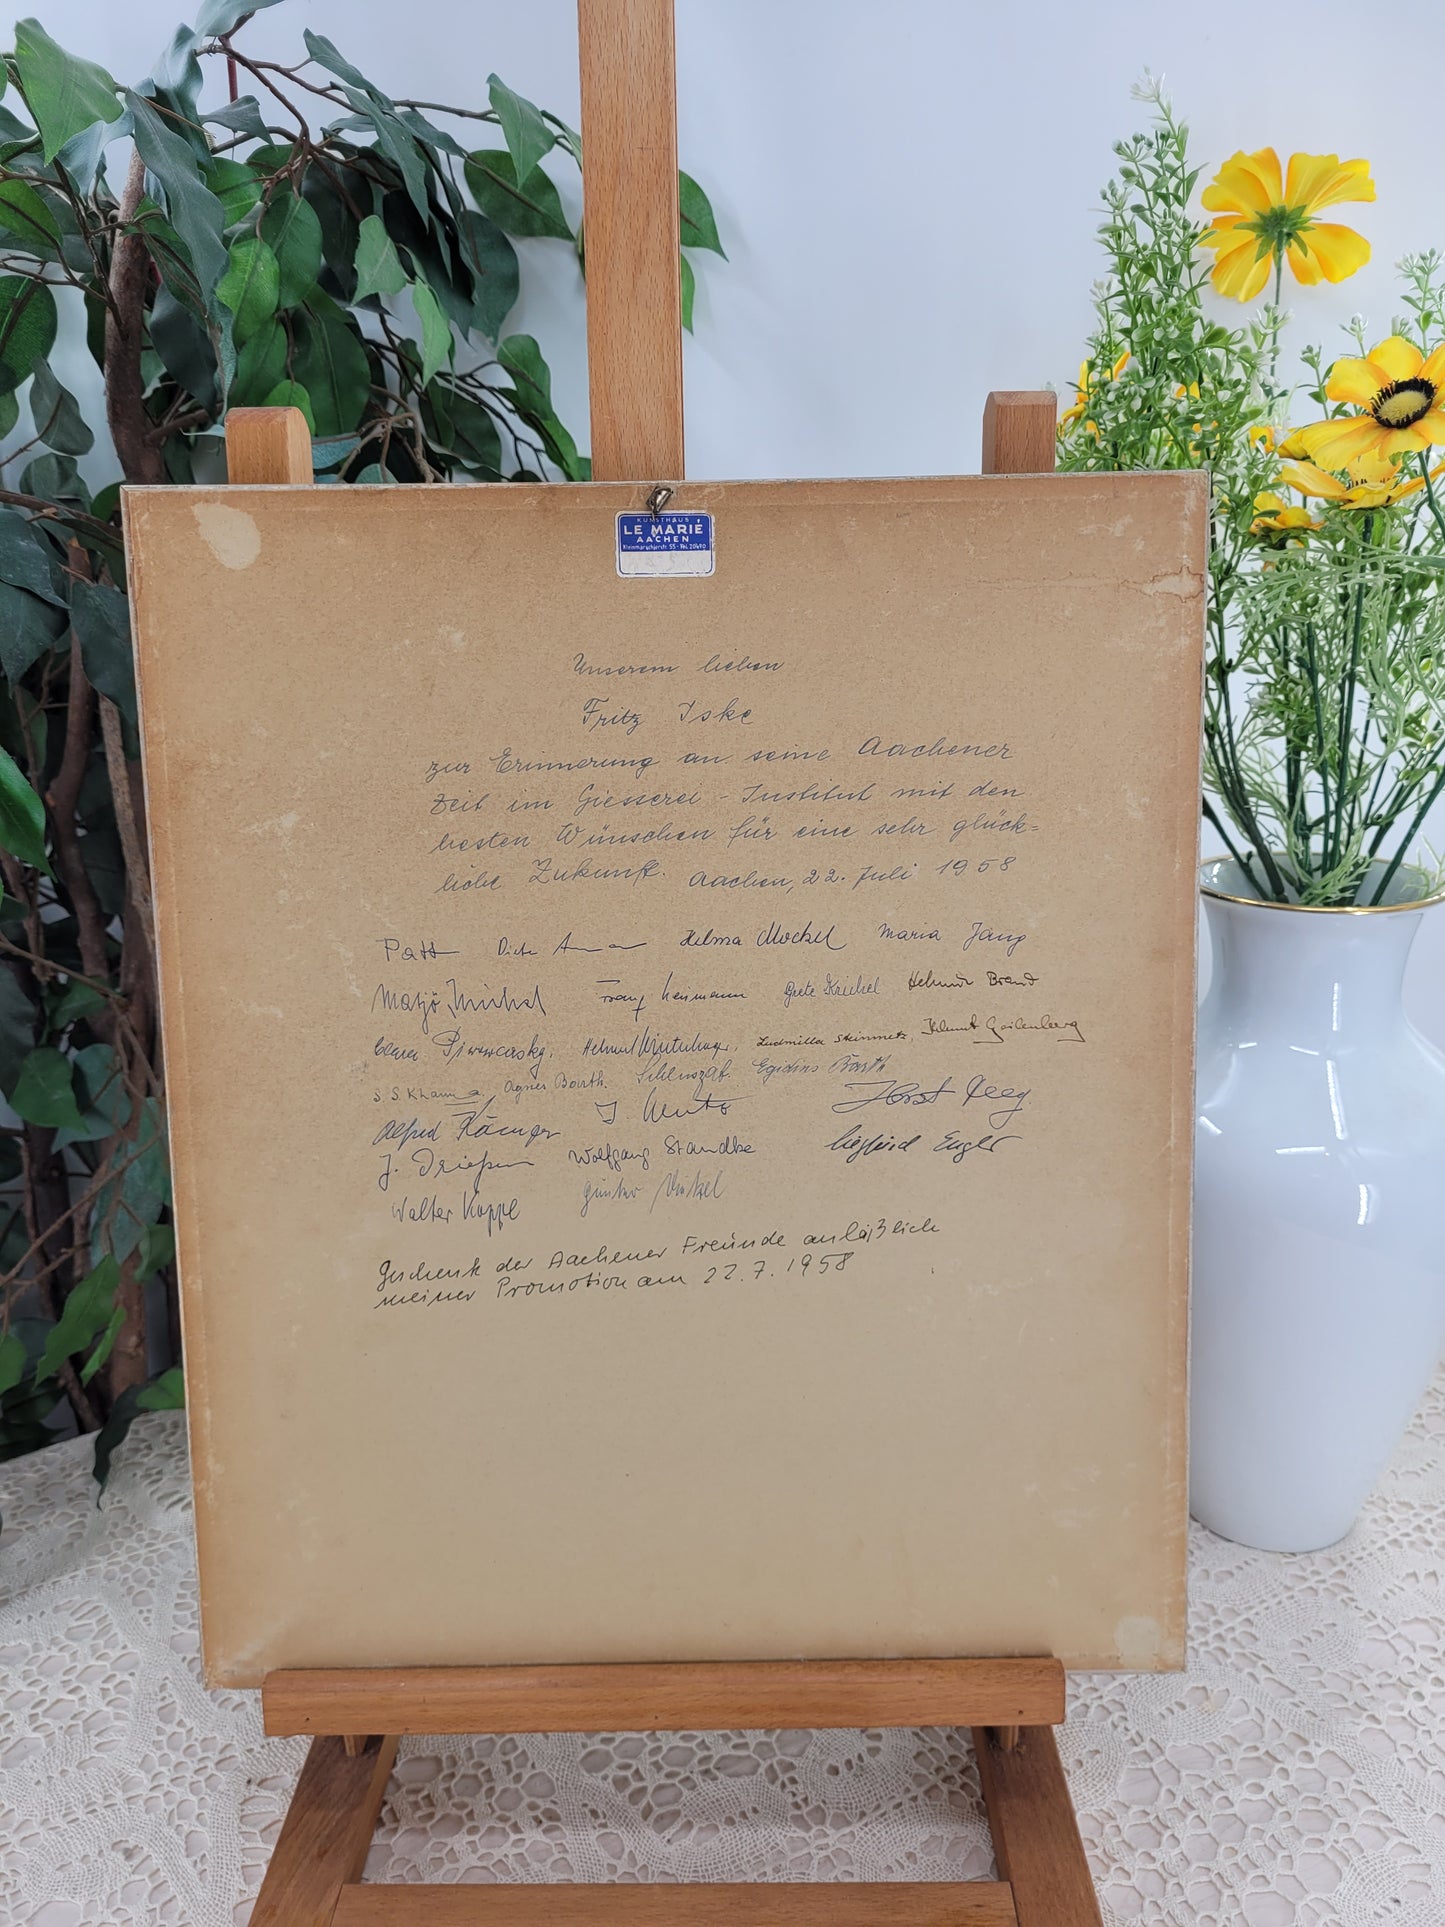 KUNSTHAUS
LE MARIÉ
AACHEN
Kleinmarschierstr. 55 - Tel. 20690
Unserem lieben
Fritz Iske
zur Erinnerung an seine Aachener
Zeit im Giesserei-Institut mit den
besten Wünschen für eine sehr glück=
liche Zukunft. Aachen, 22. Juli 1958
Patt Helma Mockel Maria Jang
Franz Heumann Grete Krichel Helmut Brand
Helmut Ludmilla Steinmetz, Helmut Geilenberg
S. S. Khanna. Agnes Barth. Egidius Barth
Alfred Horst
J. Drießen Wolfgang Standke Siegfried Engler
Walter Koppe Günter
Geschenk der Aachener Freunde anläßlich
meiner Promotion am 22.7.1958